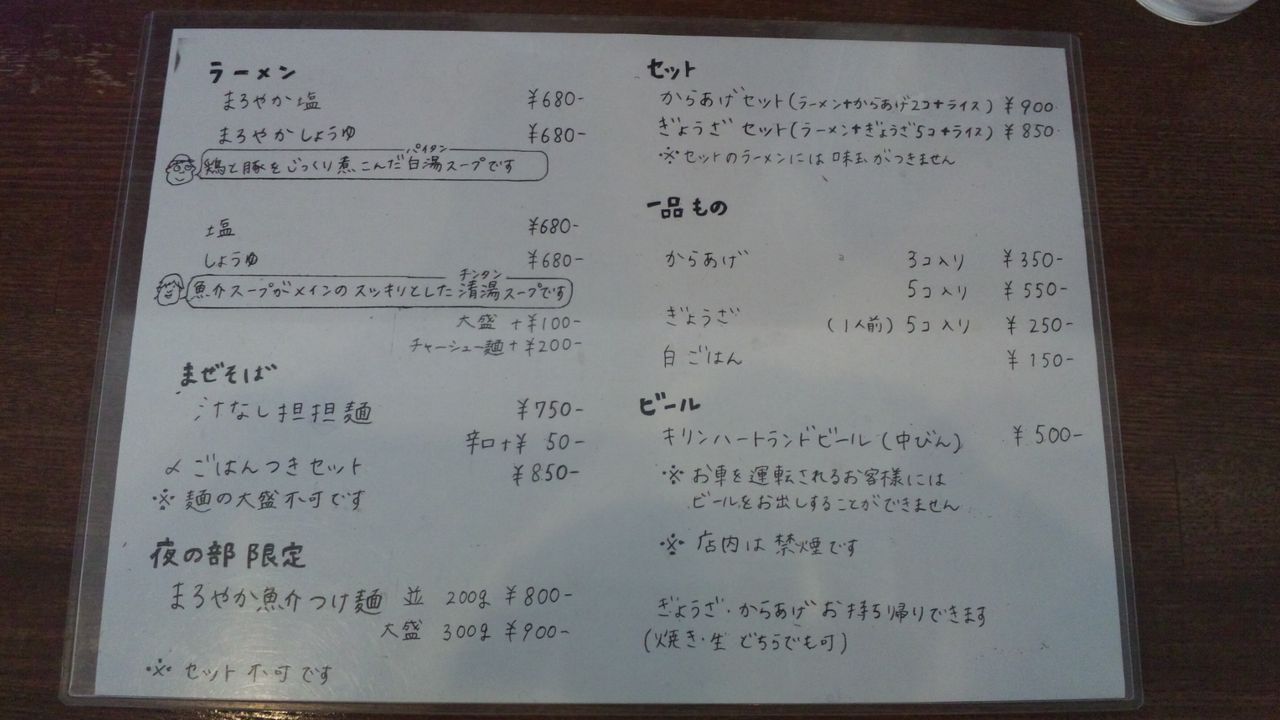 ラーメン
まろやか塩 ¥680-
まろやかしょうゆ ¥680-
パイタン
鶏と豚をじっくり煮こんだ白湯スープです
塩 ¥680-
しょうゆ ¥680-
チンタン
魚介スープがメインのスッキリとした清湯スープです
大盛 +¥100-
チャーシュー麺+¥200-
まぜそば
汁なし担担麺 ¥750-
辛口+¥ 50-
〆ごはんつきセット ¥850-
※麺の大盛不可です
夜の部限定
まろやか魚介つけ麺 並 200g ¥800-
大盛 300g ¥900-
※セット不可です
セット
からあげセット(ラーメン+からあげ2コ+ライス) ¥900-
ぎょうざセット(ラーメン+ぎょうざ5コ+ライス) ¥850-
※セットのラーメンには味玉がつきません
一品もの
からあげ 3コ入り ¥350-
5コ入り ¥550-
ぎょうざ (1人前) 5コ入り ¥250-
白ごはん ¥150-
ビール
キリンハートランドビール(中びん) ¥500-
※お車を運転されるお客様には
ビールをお出しすることができません
※店内は禁煙です
ぎょうざ・からあげお持ち帰りできます
(焼き・生 どちらでも可)